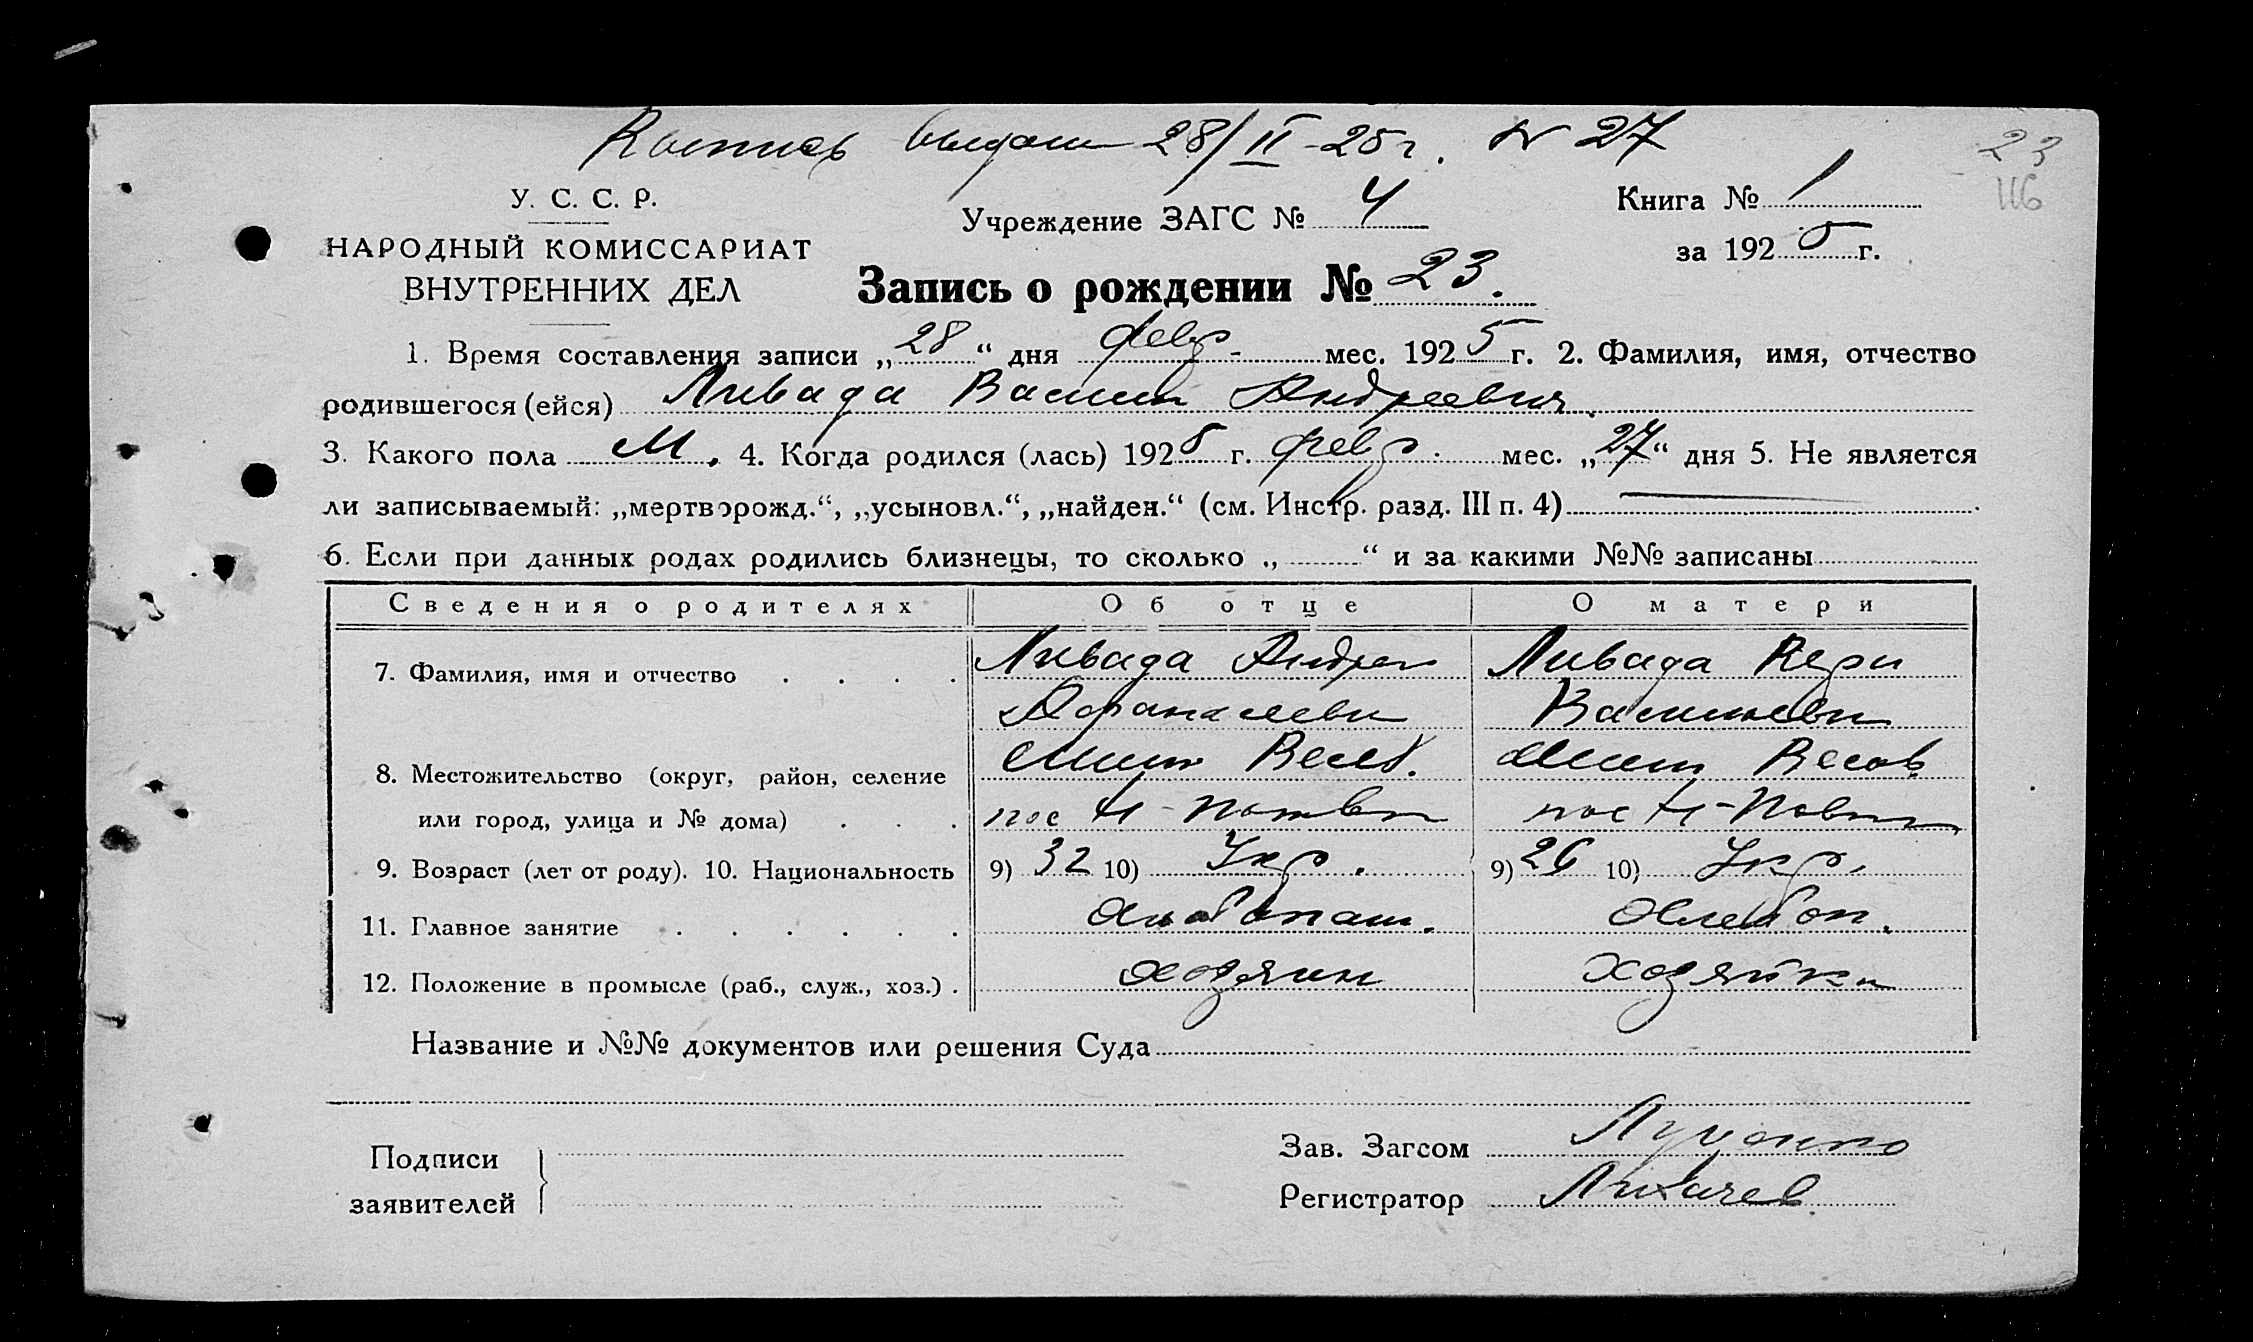 Выпись выдана 28/II-25 г. № 27
23
116
У. С. С. Р.
НАРОДНЫЙ КОМИССАРИАТ
ВНУТРЕННИХ ДЕЛ
Учреждение ЗАГС № 4
Книга № 1
за 1925 г.
Запись о рождении № 23.
1. Время составления записи „28“ дня февр. мес. 1925 г. 2. Фамилия, имя, отчество
родившегося (ейся) Ливада Васили Андреевич.
3. Какого пола М. 4. Когда родился (лась) 1925 г. февр. мес. „27“ дня 5. Не является
ли записываемый: „мертворожд.“, „усыновл.“, „найден.“ (см. Инстр. разд. III п. 4)
6. Если при данных родах родились близнецы, то сколько „ “ и за какими №№ записаны
Сведения о родителях Об отце О матери
7. Фамилия, имя и отчество Ливада Андрей Ливада Вера
Афанасьеви Васильевн
8. Местожительство (округ, район, селение
или город, улица и № дома) пос пос
9. Возраст (лет от роду). 10. Национальность 9) 32 10) Укр. 9) 26 10) Укр.
11. Главное занятие Хлебопаш. Хлебоп.
12. Положение в промысле (раб., служ., хоз.) хозяин хозяйка
Название и №№ документов или решения Суда
Подписи
заявителей
Зав. Загсом Луценко
Регистратор Лихачев